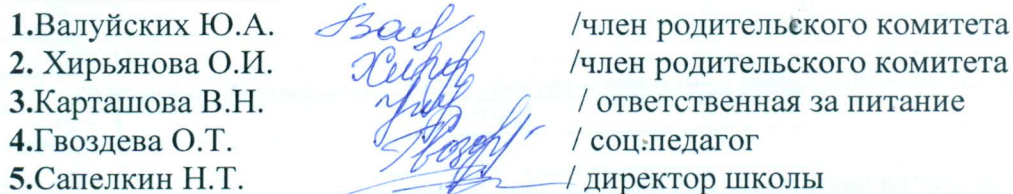 1.Валуйских Ю.А. /член родительского комитета
2. Хирьянова О.И. /член родительского комитета
3.Карташова В.Н. / ответственная за питание
4.Гвоздева О.Т. / соц.педагог
5.Сапелкин Н.Т. / директор школы